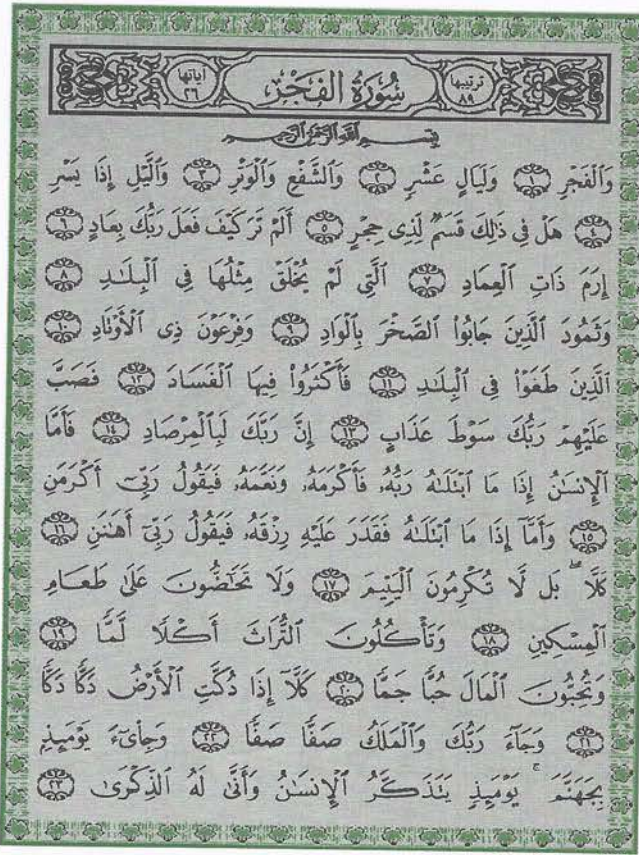 ترتيبها ٨٩ سُورَةُ الْفَجْرِ آياتها ٢٦
بِسْمِ اللَّهِ الرَّحْمَٰنِ الرَّحِيمِ
وَٱلْفَجْرِ ١ وَلَيَالٍ عَشْرٍ ٢ وَٱلشَّفْعِ وَٱلْوَتْرِ ٣ وَٱلَّيْلِ إِذَا يَسْرِ
٤ هَلْ فِى ذَٰلِكَ قَسَمٌ لِّذِى حِجْرٍ ٥ أَلَمْ تَرَ كَيْفَ فَعَلَ رَبُّكَ بِعَادٍ ٦
إِرَمَ ذَاتِ ٱلْعِمَادِ ٧ ٱلَّتِى لَمْ يُخْلَقْ مِثْلُهَا فِى ٱلْبِلَٰدِ ٨
وَثَمُودَ ٱلَّذِينَ جَابُوا۟ ٱلصَّخْرَ بِٱلْوَادِ ٩ وَفِرْعَوْنَ ذِى ٱلْأَوْتَادِ ١٠
ٱلَّذِينَ طَغَوْا۟ فِى ٱلْبِلَٰدِ ١١ فَأَكْثَرُوا۟ فِيهَا ٱلْفَسَادَ ١٢ فَصَبَّ
عَلَيْهِمْ رَبُّكَ سَوْطَ عَذَابٍ ١٣ إِنَّ رَبَّكَ لَبِٱلْمِرْصَادِ ١٤ فَأَمَّا
ٱلْإِنسَٰنُ إِذَا مَا ٱبْتَلَىٰهُ رَبُّهُۥ فَأَكْرَمَهُۥ وَنَعَّمَهُۥ فَيَقُولُ رَبِّىٓ أَكْرَمَنِ
١٥ وَأَمَّآ إِذَا مَا ٱبْتَلَىٰهُ فَقَدَرَ عَلَيْهِ رِزْقَهُۥ فَيَقُولُ رَبِّىٓ أَهَٰنَنِ ١٦
كَلَّا ۖ بَل لَّا تُكْرِمُونَ ٱلْيَتِيمَ ١٧ وَلَا تَحَٰٓضُّونَ عَلَىٰ طَعَامِ
ٱلْمِسْكِينِ ١٨ وَتَأْكُلُونَ ٱلتُّرَاثَ أَكْلًا لَّمًّا ١٩
وَتُحِبُّونَ ٱلْمَالَ حُبًّا جَمًّا ٢٠ كَلَّآ إِذَا دُكَّتِ ٱلْأَرْضُ دَكًّا دَكًّا
٢١ وَجَآءَ رَبُّكَ وَٱلْمَلَكُ صَفًّا صَفًّا ٢٢ وَجِا۟ىٓءَ يَوْمَئِذٍۭ
بِجَهَنَّمَ ۚ يَوْمَئِذٍ يَتَذَكَّرُ ٱلْإِنسَٰنُ وَأَنَّىٰ لَهُ ٱلذِّكْرَىٰ ٢٣